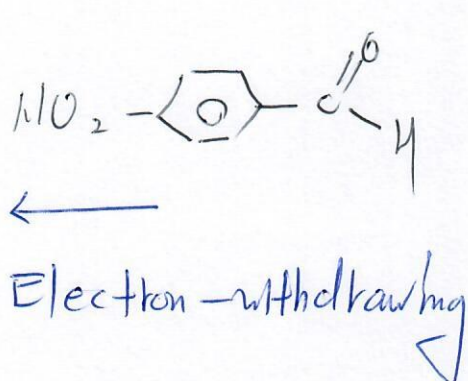 O
NO₂ C
H
Electron-withdrawing